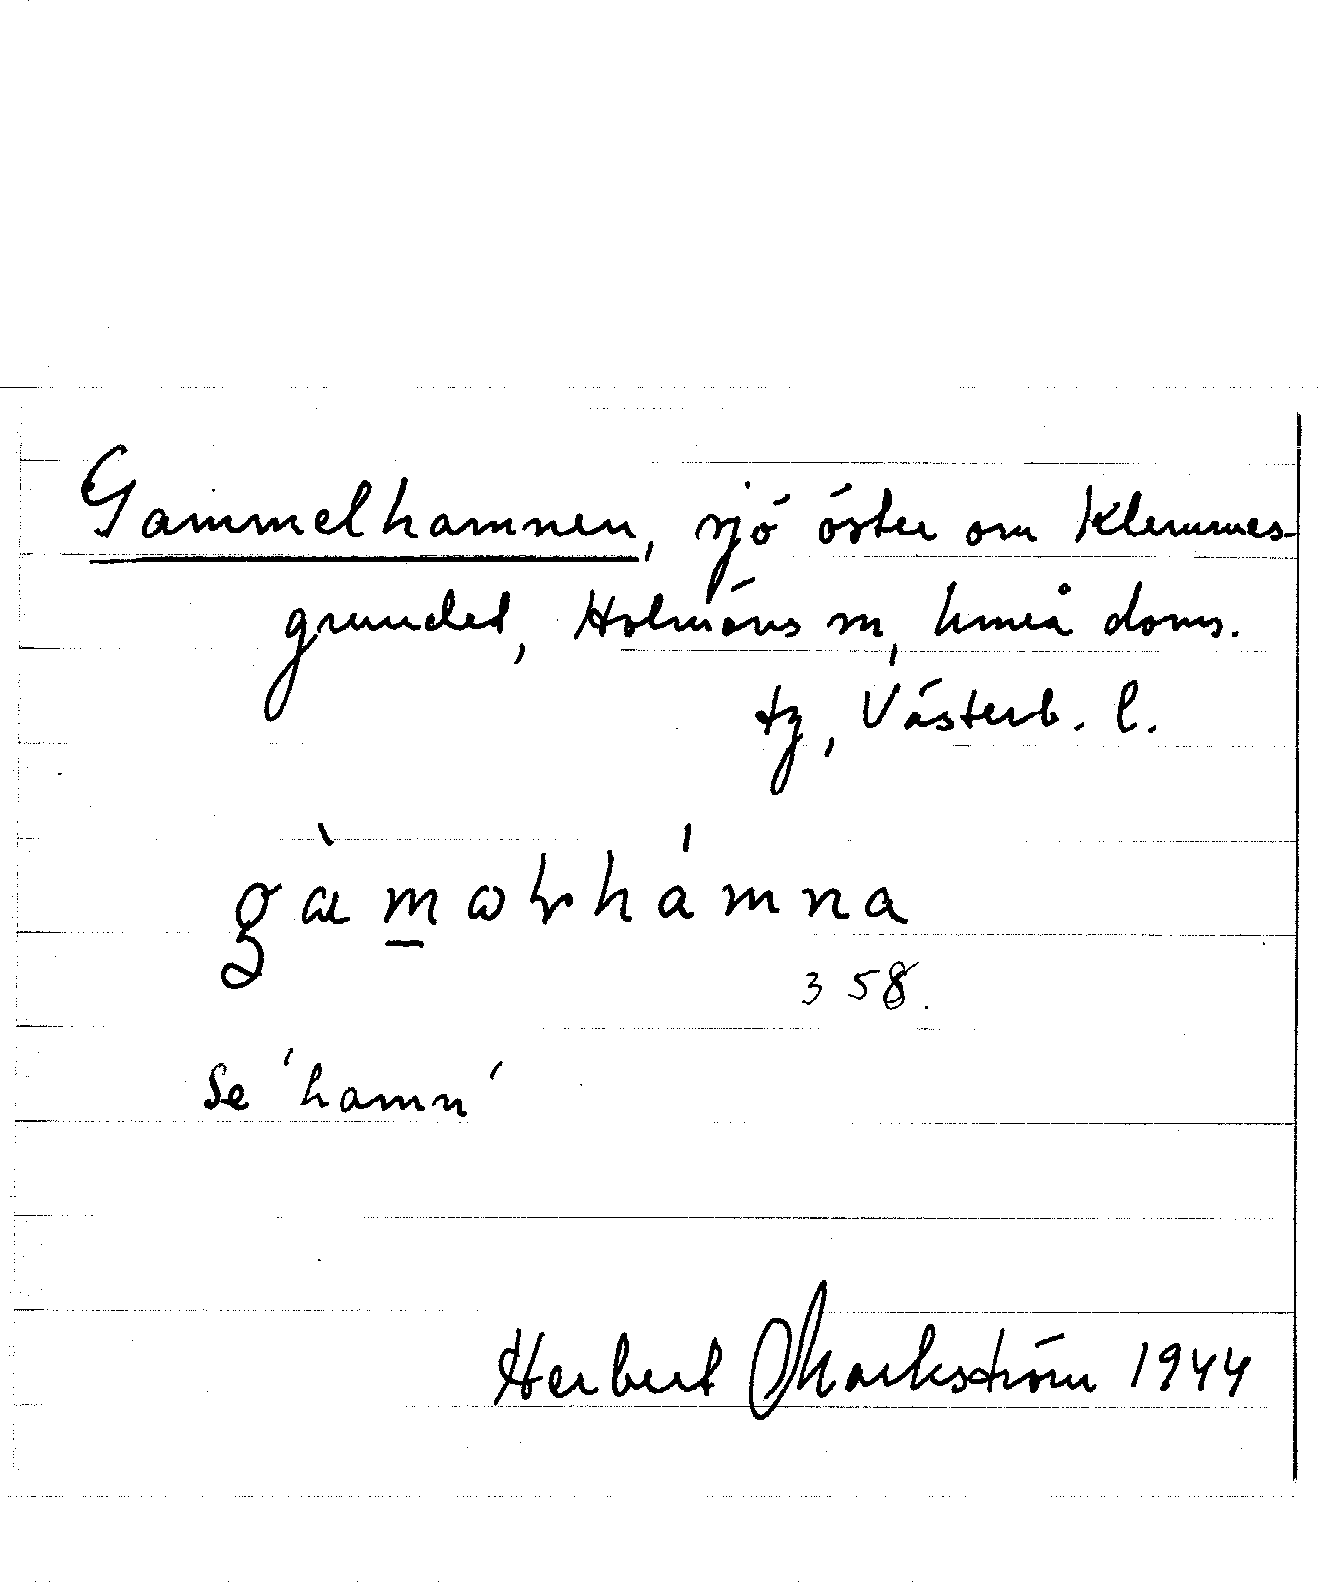 Gammelhamnen, sjö öster om Klemmes-
grundet, Holmöns sn, Umeå doms.
tg, Västerb. l.
358.
Se 'hamn'
Herbert Markström 1944